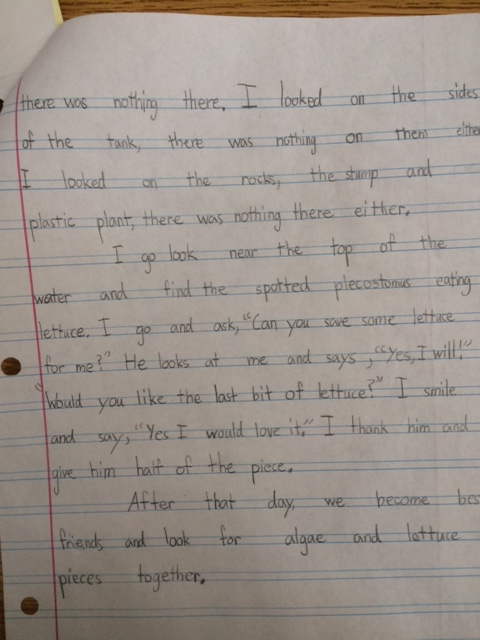 there was nothing there. I looked on the sides
of the tank, there was nothing on them either
I looked on the rocks, the stump and
plastic plant, there was nothing there either.
I go look near the top of the
water and find the spotted plecostomus eating
lettuce. I go and ask, "Can you save some lettuce
for me?" He looks at me and says, "Yes, I will!"
"Would you like the last bit of lettuce?" I smile
and say, "Yes I would love it." I thank him and
give him half of the piece.
After that day, we become bes
friends and look for algae and lettuce
pieces together.